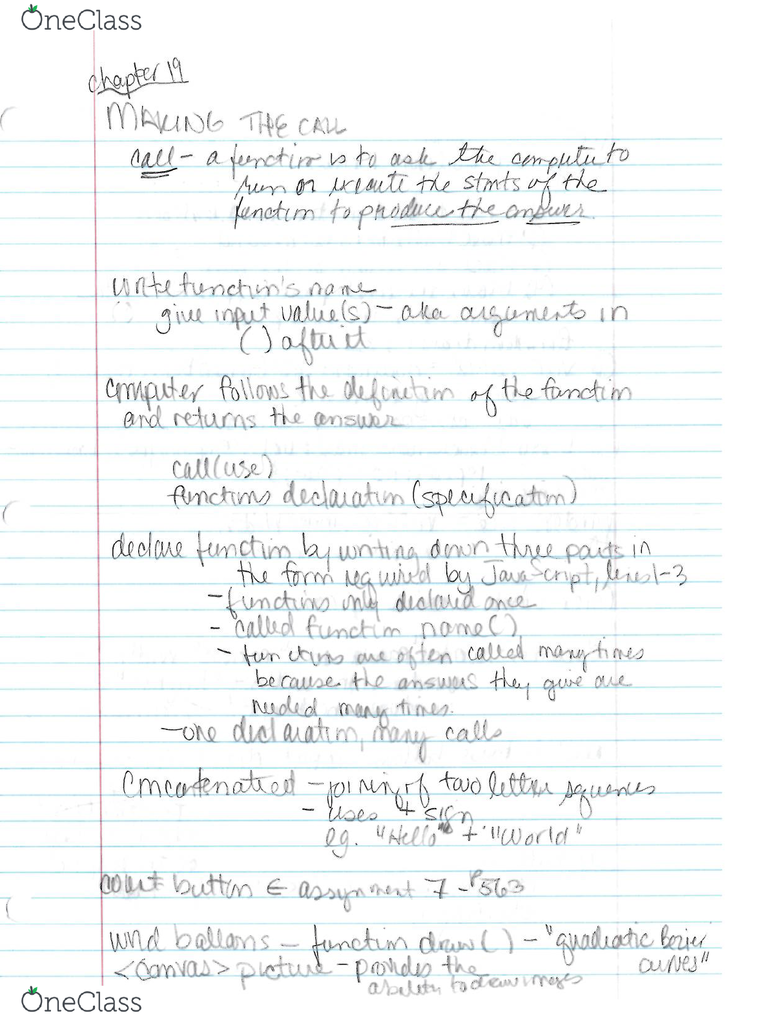 OneClass
chapter 19
MAKING THE CALL
call - a function is to ask the computer to
run or execute the stmts of the
function to produce the answer.
write function's name
give input value(s) - aka arguments in
( ) after it
computer follows the definition of the function
and returns the answer
call (use)
functions declaration (specification)
declare function by writing down three parts in
the form required by JavaScript, lines 1-3
- functions only declared once
- called function name()
- functions are often called many times
because the answers they give are
needed many times.
- one declaration, many calls
- joining of two letter sequences
- uses + sign
eg. "Hello" + "World"
count button ∈ assignment 7 - P563
ballons - function draw() - "quadratic Bezier
<canvas> picture - provides the curves"
ability to draw images
OneClass